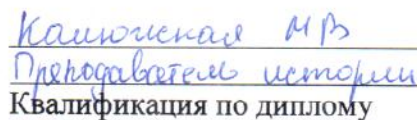 Калюжная МВ
Преподаватель истории
Квалификация по диплому